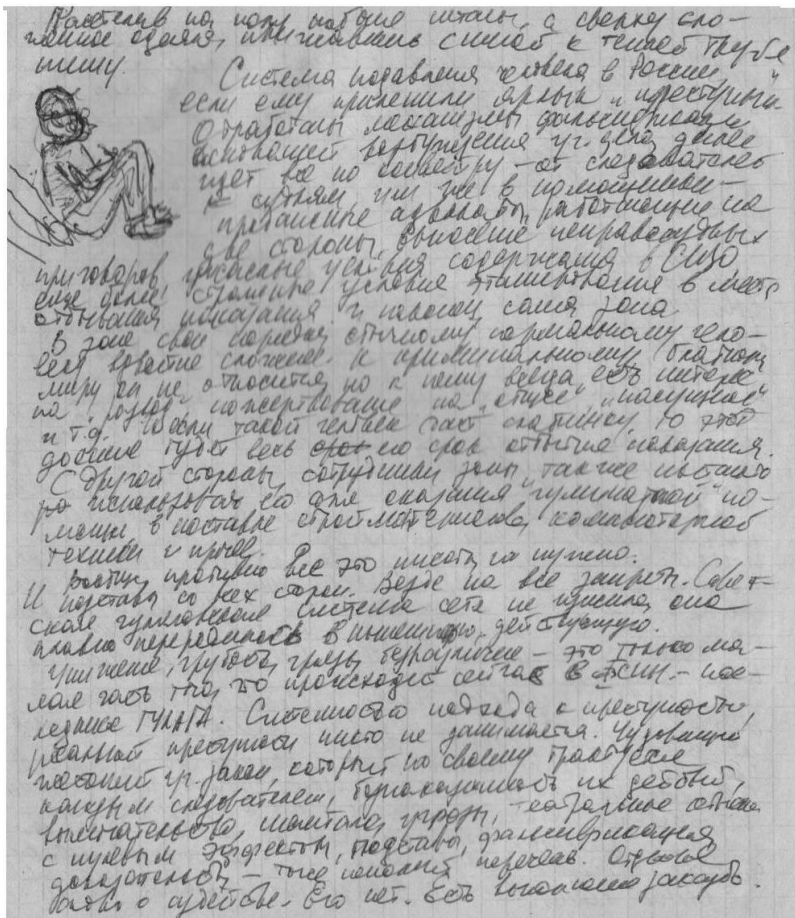 Расстелив на полу ватные штаны, а сверху сло-
женное одеяло, прижавшись спиной к теплой трубе
пишу.
Система подавления человека в России,
если ему прилепили ярлык „преступный".
Отработаны механизмы фальсификации
возбуждения уг. дела, далее
идет все по конвейеру – от следователей
к судьям, им же в помощники –
продажные адвокаты, работающие на
две стороны, вынесение неправосудных
приговоров, ужасные условия содержания в СИЗО
еще более страшные условия этапирования в места
отбывания наказания и наконец сама зона
В зоне свои порядки обычному нормальному чело-
веку вдвойне сложнее. К криминальному, блатному
миру он не относится, но к нему всегда есть интерес
на развод, пожертвование на „общее", „насущное"
и т.д. И если такой человек даст слабинку, то
доение будет весь его срок отбытия наказания.
С другой стороны сотрудники зоны, также
использовать его для оказания „гуманитарной" по-
мощи в поставке стройматериалов, компьютерной
техники и проч.
противно все это писать, но нужно.
И подставы со всех сторон. Везде на все запреты. Совет-
ская гулаговская система себя не изжила, она
плавно переродилась в нынешнюю, действующую.
Унижение, грубость, грязь, безразличие – это только ма-
лая часть того, что происходит сейчас в ФСИН – нас-
леднице ГУЛАГА. Системностью подхода к преступности,
реальной преступности никто не занимается. Чудовищно
уг. закон, который по своему трактуется
каждым следователем, безнаказанность их действий,
вымогательство, шантаж, угрозы, –
с нулевым эффектом, подставы, фальсификация
доказательств – тоже неполный перечень. Отдельно
о судействе. Его нет. Есть